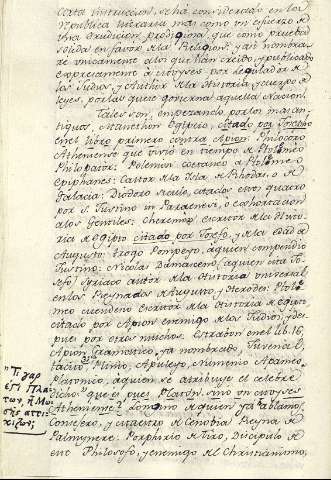 esta instruccion, se há considerado en los
Republica literaria mas como un esfuerzo de
una erudicion prodigiosa, que como prueba
solida en favor de la Religion
unicamente a los que han creido, y publicado
expresamente á Moyses por legislador de
los Judios, y Author de la Historia, y cuerpo de
leyes, por las que se governaba aquella Nacion.
Tales son, empezando por los mas an-
tiguos, Manethon Egipcio, citado por Josefo
en el libro primero contra Apion: Philocoro
Atheniense que vivió en tiempo de Ptolomeo
Philopator: Polemon coetaneo de Ptolomeo
Epiphanes: Castor de la Isla de Rhodas, o de
Galacia: Diodoro Siculo, citados estos quatro
por S. Justino in Paraenesi, o exhortacion
a los Gentiles: Cheremon, escritor de la Histo-
ria de Egipto citado por Josefo, y de la edad de
Augusto: Trogo Pompeyo, a quien compendió
Justino: Nicolas Damasceno, a quien cita Jo-
sefo Syriaco author de la Historia universal
en los Reynados de Augusto, y Herodes: Ptolo-
meo escritor de la Historia de Egipto
citado por Apion enemigo de los Judios, y des-
pues por otros muchos. Estrabon en el lib. 16.
Apion Gramatico, ya nombrado, Juvenal,
Tacito, Plinio, Apuleyo, Numenio Apameo
Platonico, a quien se atribuye el celebre
dicho: que es pues Platon, sino un Moyses
Atheniense? Longino de quien ya hablamos,
Consejero, y Maestro de Cenobia Reyna de
Palmyrene: Porphirio de Tiro, Discipulo de
este Philosofo, y enemigo del Christianismo,
"Τι γαρ
εστι Πλα-
των, ἢ Μω-
σης αττι-
κιζων;